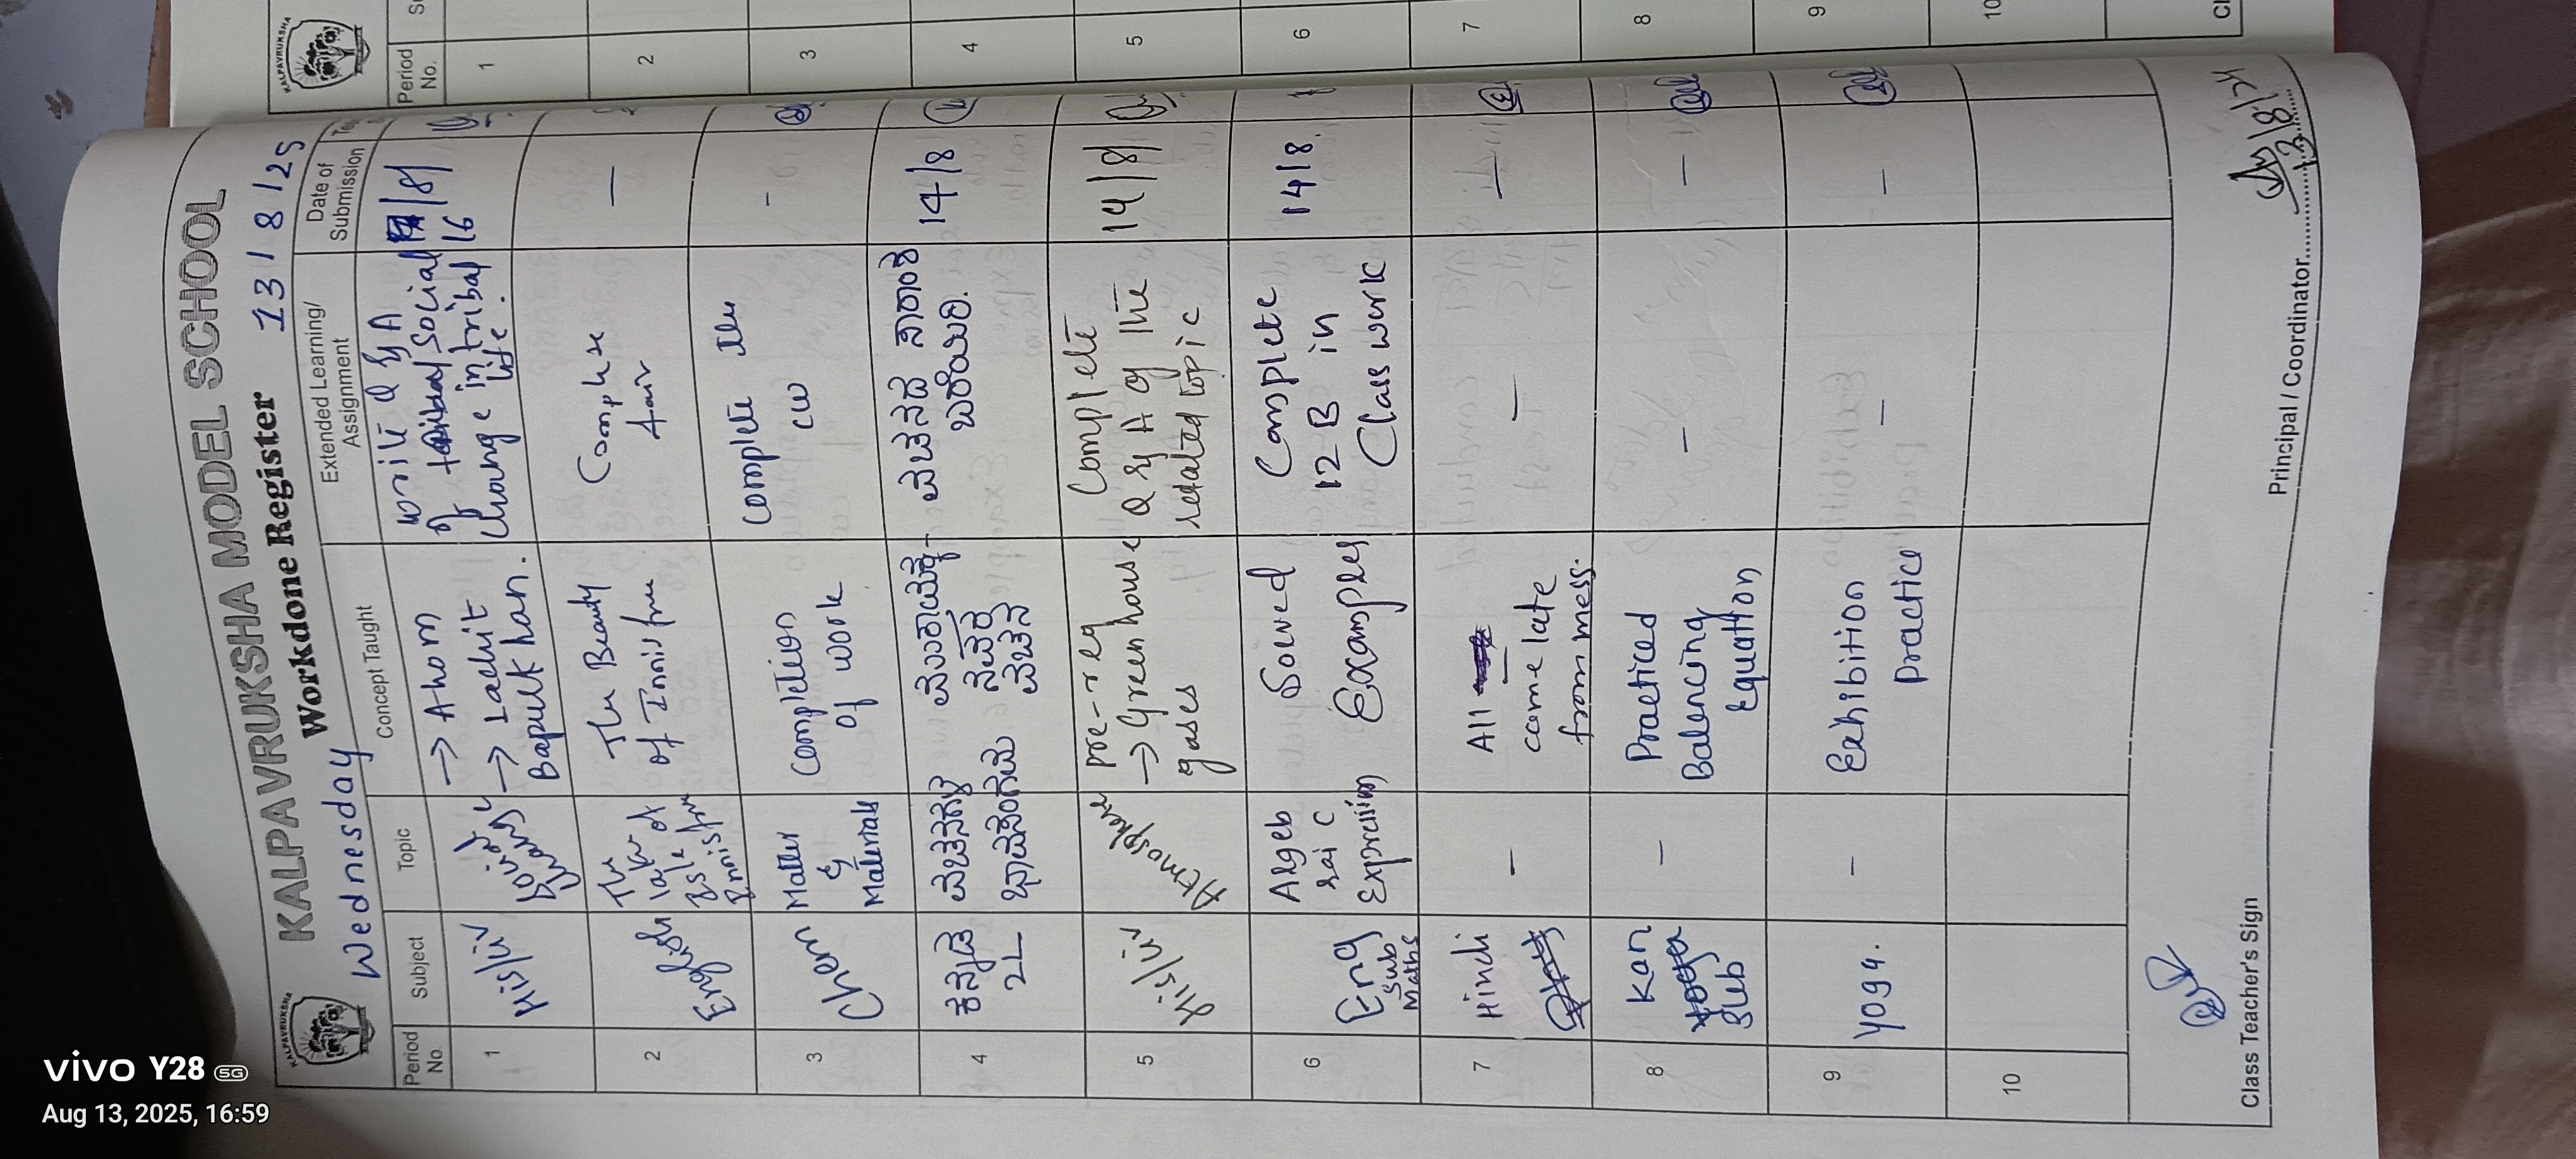 KALPAVRUKSHA
KALPAVRUKSHA MODEL SCHOOL
Workdone Register
Wednesday
13/8/25
Period No.
Subject
Topic
Concept Taught
Extended Learning/ Assignment
Date of Submission
1
His/civ
→ Ahom
→ Lachit
Bapulkhan.
write Q & A
of tribal social
change in tribal
life.
16/8/
2
English
The
Lake
of
Isle
Innisfree
The Beauty
of Innisfree
Complete
fair
—
3
Chem
Matter
&
Materials
Completion
of work
Complete the
CW
-
4
ಕನ್ನಡ
2L
ವಚನಗಳ
ವಚನದ ಸಾರಾಂಶ
ಬರೆಯಿರಿ.
14/8
5
His/civ
Atmosphere
pre-req
→ Green house
gases
Complete
Q & A of the
related topic
14/8/
6
Eng
Sub
Maths
Algeb
raic
Expression
Solved
Examples
Complete
12 B in
Class work
14/8.
7
Hindi
—
All
came late
from mess.
—
—
8
Kan
Sub
—
Practiced
Balencing
Equation
—
—
9
yoga.
—
Exhibition
practice
—
—
10
Class Teacher's Sign
Principal / Coordinator
13/8/24
KALPAVRUKSHA
Period No.
1
2
3
4
5
6
7
8
9
10
vivo Y28 5G
Aug 13, 2025, 16:59